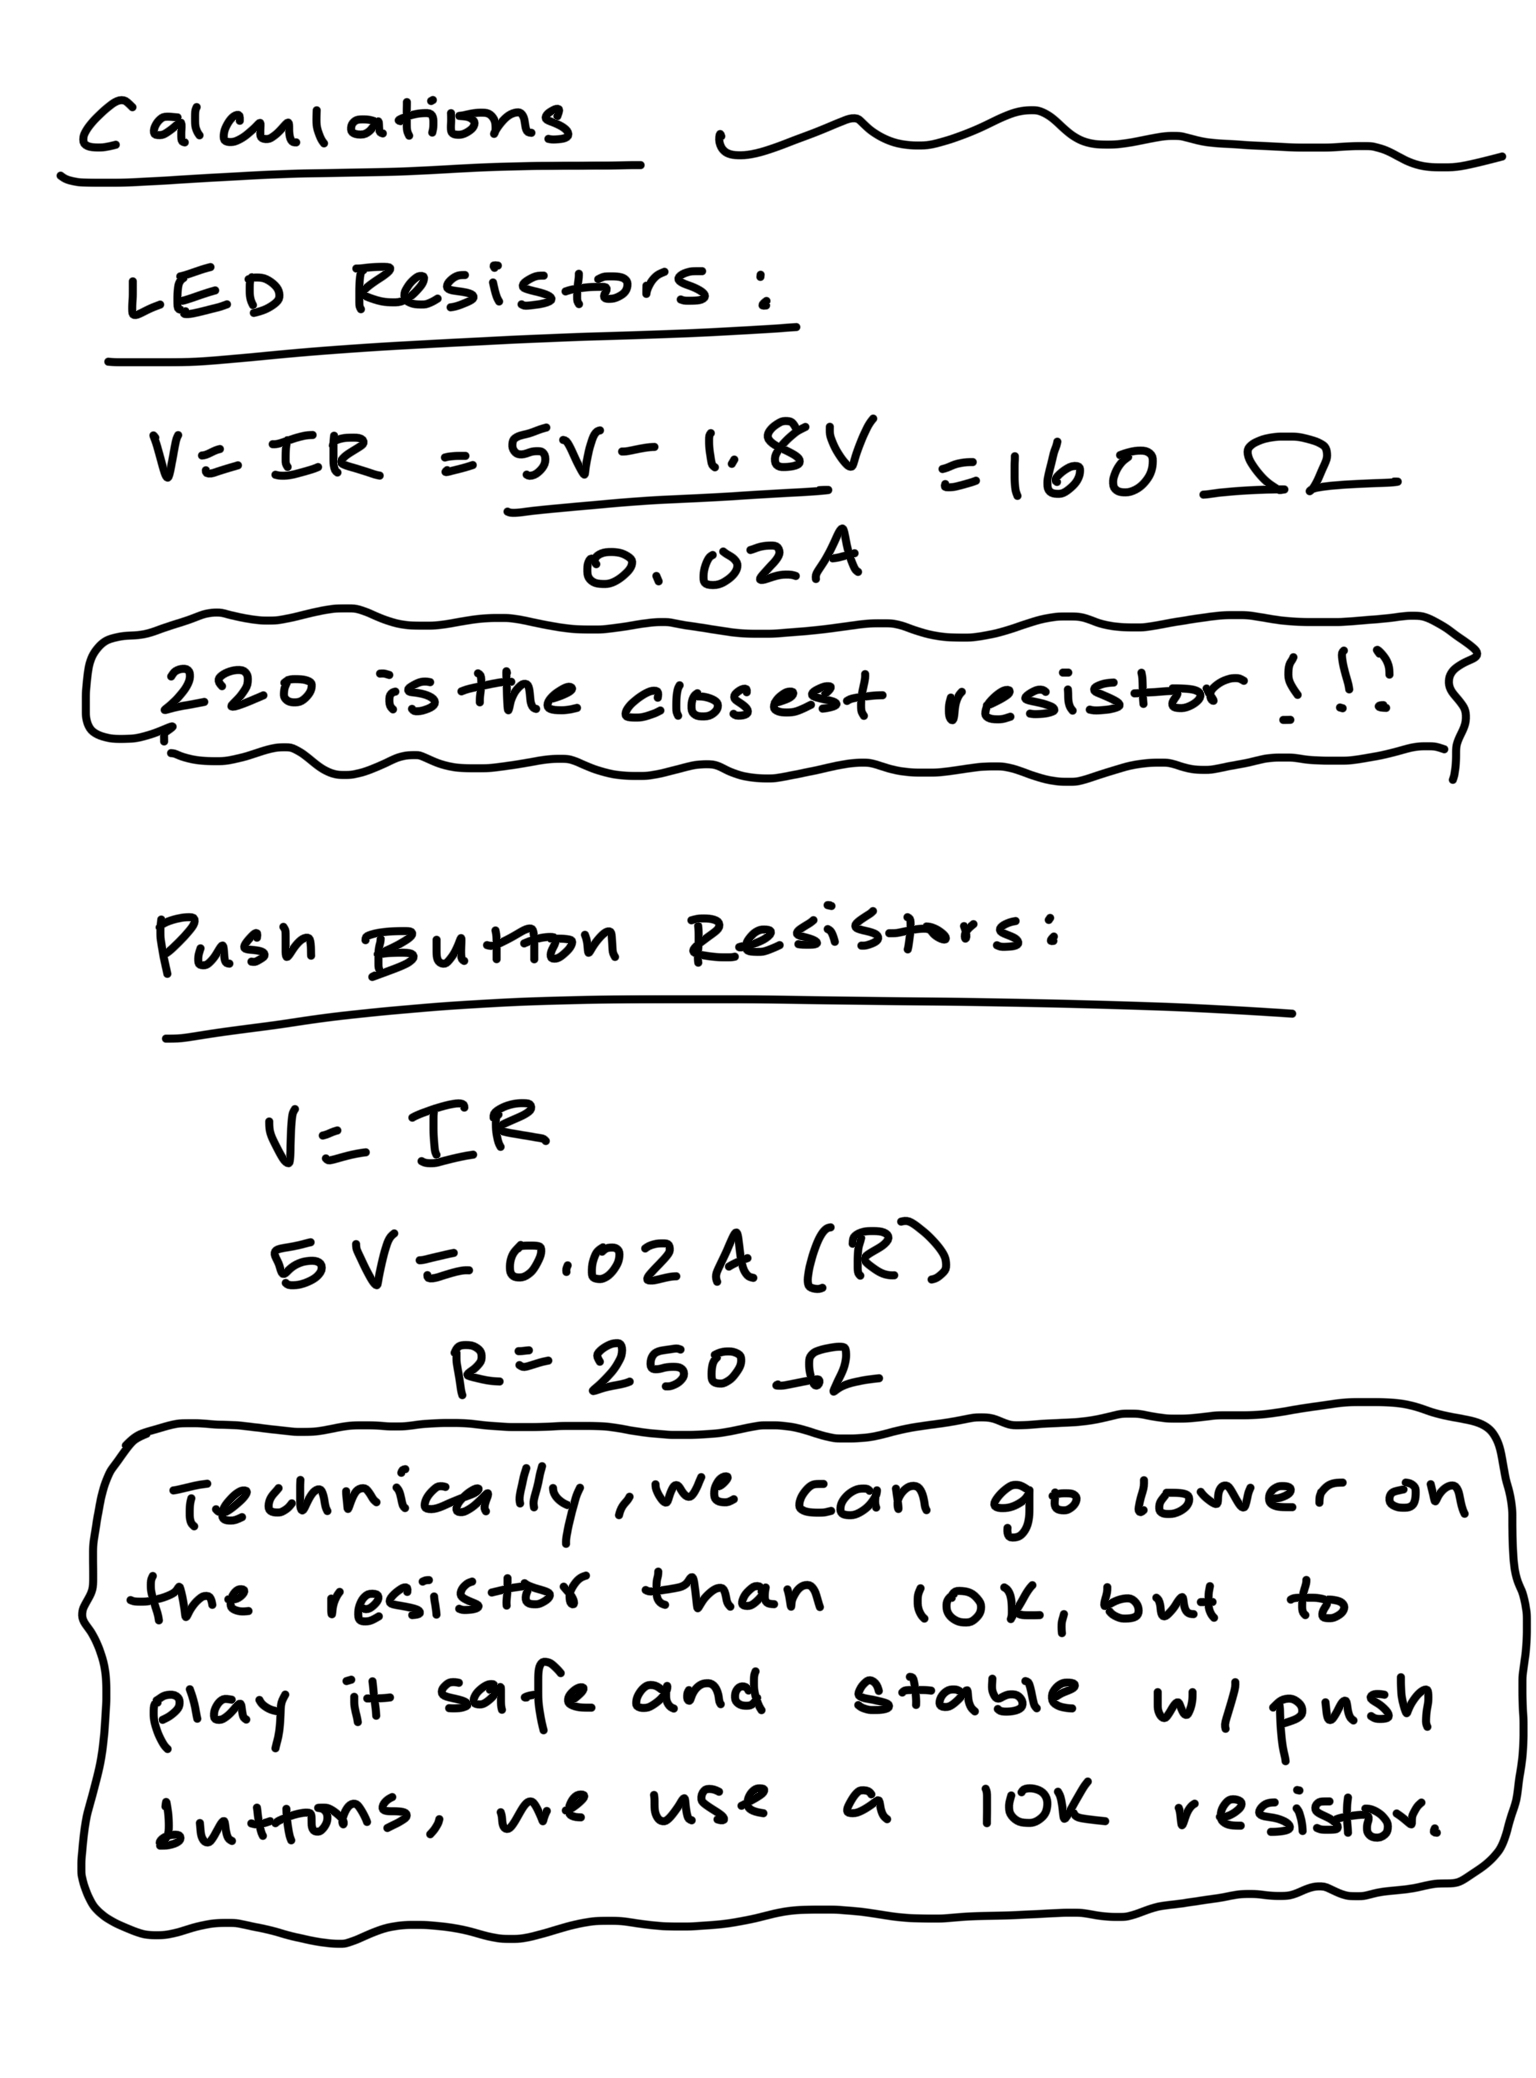 Calculations
LED Resistors:
V= IR = 5V- 1.8V = 160 Ω
0.02A
220 is the closest resistor!!!
Push Button Resistors:
V= IR
5V= 0.02 A (R)
R= 250 Ω
Technically, we can go lower on
the resistor than 10K, but to
play it safe and stable w/ push
buttons, we use a 10K resistor.